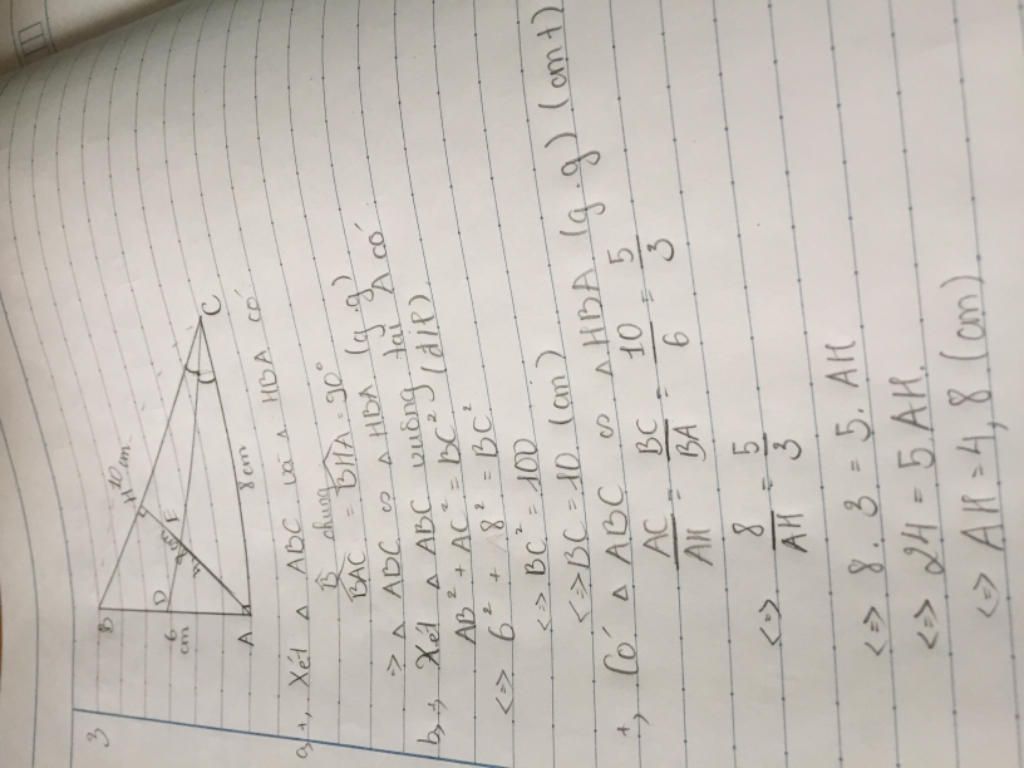 3
B
H
10 cm
D
E
6
cm
A
8 cm
C
a, +, Xét △ ABC và △ HBA có
B̂ chung
BAC = BHA = 90°
=> △ ABC ∽ △ HBA (g.g)
b, +, Xét △ ABC vuông tại A có
AB² + AC² = BC² (đlP)
<=> 6² + 8² = BC²
<=> BC² = 100
<=> BC = 10 (cm)
+, Có △ ABC ∽ △ HBA (g.g) (cmt)
AC/AH = BC/BA = 10/6 = 5/3
<=> 8/AH = 5/3
<=> 8 . 3 = 5 . AH
<=> 24 = 5 . AH.
<=> AH = 4,8 (cm)